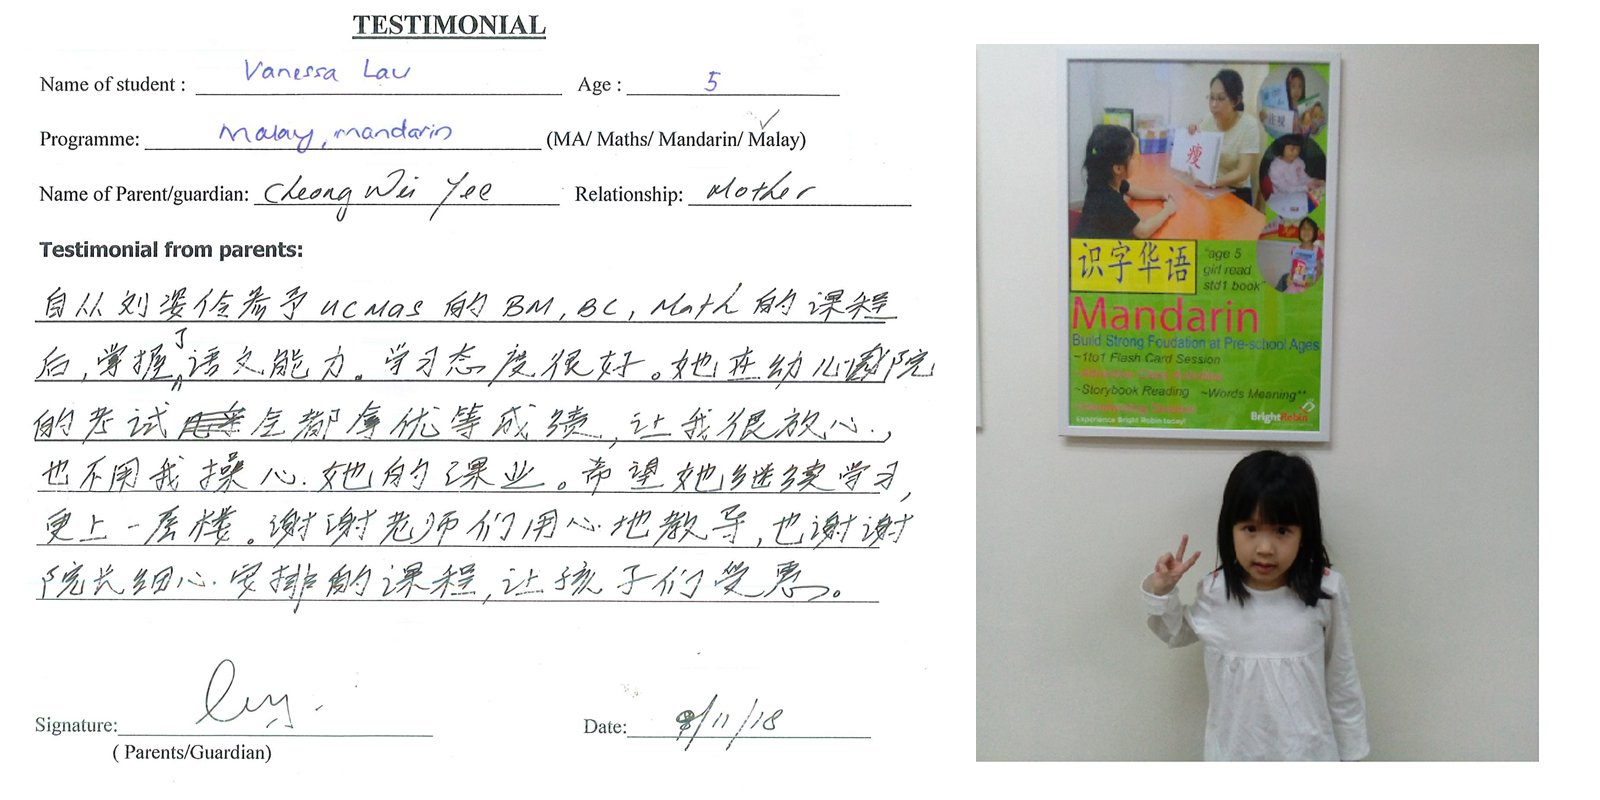 TESTIMONIAL
Name of student : Vanessa Lau Age : 5
Programme: Malay, mandarin (MA/ Maths/ Mandarin/ Malay)
Name of Parent/guardian: Cheong Wei Yee Relationship: Mother
Testimonial from parents:
自从刘姿伶参予 UCMAS 的 BM, BC, Math 的课程
后,掌握了语文能力。学习态度很好。她在幼儿院
的考试全都拿优等成绩,让我很放心,
也不用我操心她的课业。希望她继续学习,
更上一层楼。谢谢老师们用心地教导,也谢谢
院长细心安排的课程,让孩子们受惠。
Signature:
( Parents/Guardian)
Date: 8/11/18
瘦
识字华语
"age 5
girl read
std1 book"
Mandarin
Build Strong Foudation at Pre-school Ages
~1to1 Flash Card Session
~Storybook Reading ~Words Meaning**
BrightRobin
Experience Bright Robin today!